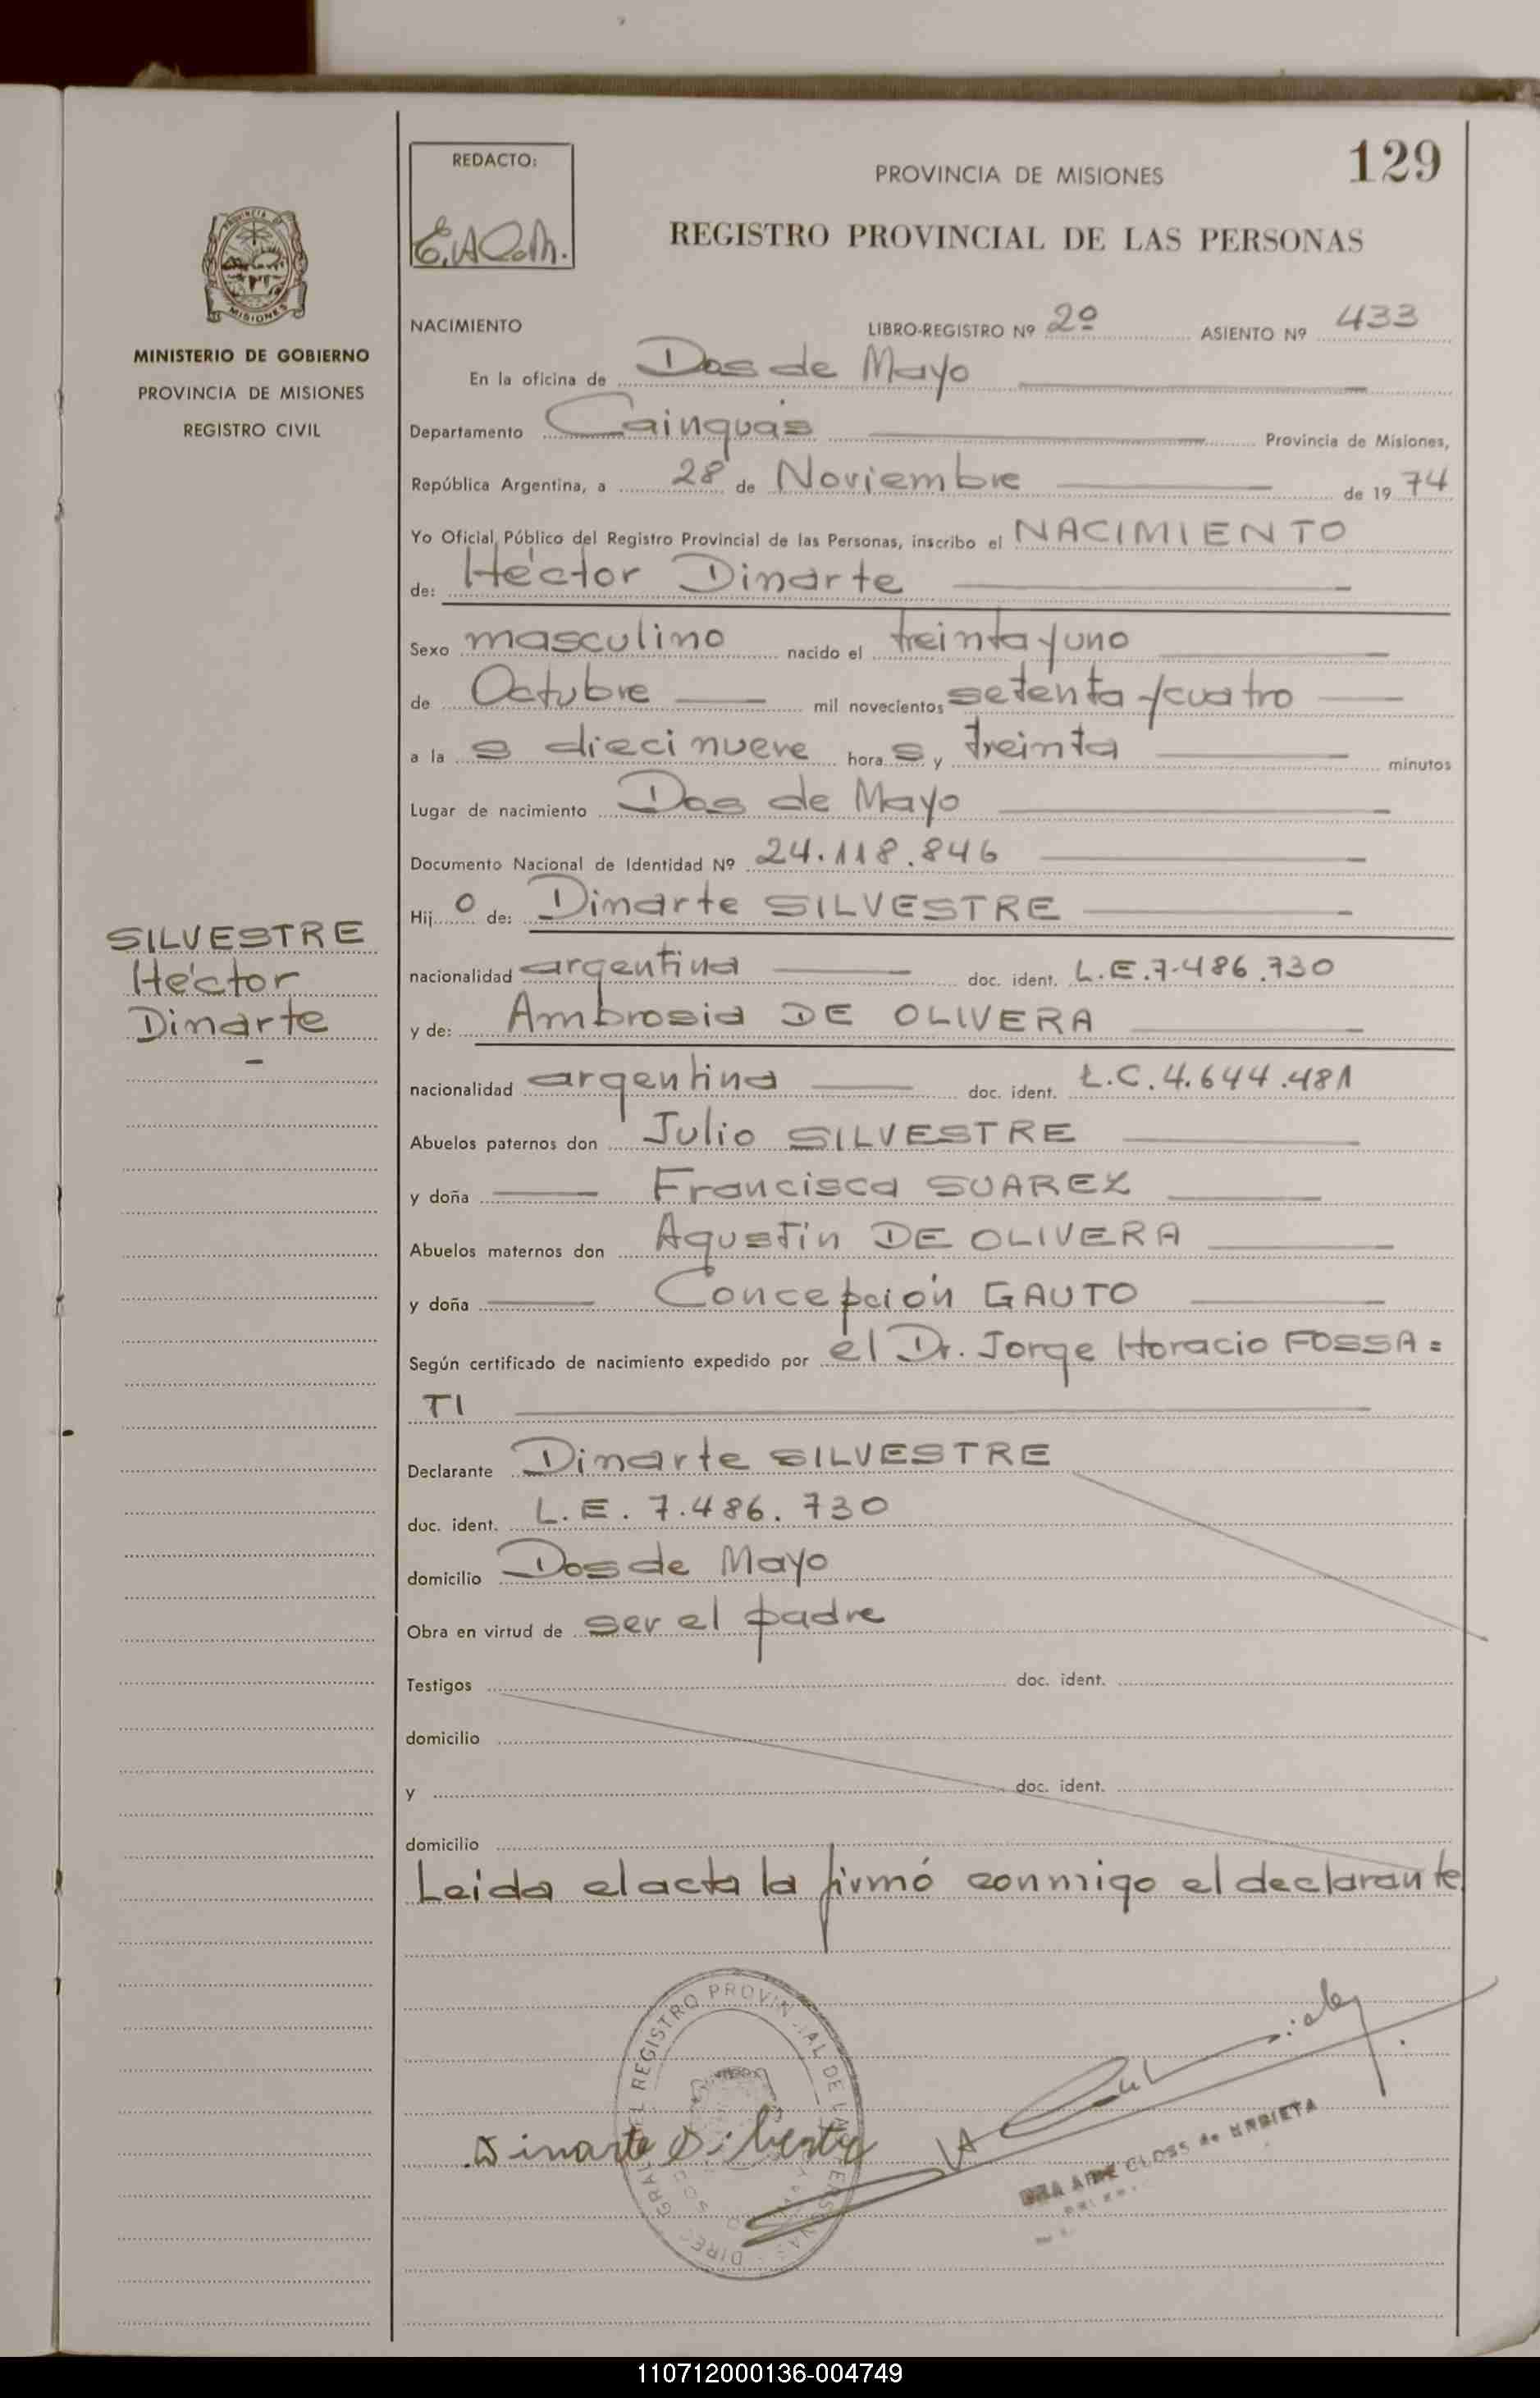 129
REDACTO:
PROVINCIA DE MISIONES
REGISTRO PROVINCIAL DE LAS PERSONAS
MISIONES
MINISTERIO DE GOBIERNO
PROVINCIA DE MISIONES
REGISTRO CIVIL
NACIMIENTO LIBRO-REGISTRO Nº 2º ASIENTO Nº 433
En la oficina de Dos de Mayo
Departamento Cainguás Provincia de Misiones,
República Argentina, a 28 de Noviembre de 19 74
Yo Oficial Público del Registro Provincial de las Personas, inscribo el NACIMIENTO
de: Héctor Dinarte
Sexo masculino nacido el treinta y uno
de Octubre mil novecientos setenta y cuatro
a la s diecinueve hora s y treinta minutos
Lugar de nacimiento Dos de Mayo
Documento Nacional de Identidad Nº 24.118.846
Hij o de: Dinarte SILVESTRE
SILVESTRE
Héctor
Dinarte
nacionalidad argentina doc. ident. L.E.7.486.730
y de: Ambrosia DE OLIVERA
nacionalidad argentina doc. ident. L.C.4.644.481
Abuelos paternos don Julio SILVESTRE
y doña Francisca SUAREZ
Abuelos maternos don Agustín DE OLIVERA
y doña Concepción GAUTO
Según certificado de nacimiento expedido por el Dr. Jorge Horacio FOSSA=
TI
Declarante Dinarte SILVESTRE
doc. ident. L.E. 7.486.730
domicilio Dos de Mayo
Obra en virtud de ser el padre
Testigos doc. ident.
domicilio
y doc. ident.
domicilio
Leida el acta la firmó conmigo el declarante
REGISTRO PROVINCIAL DE LAS PERSONAS
Dinarte Silbestre
110712000136-004749